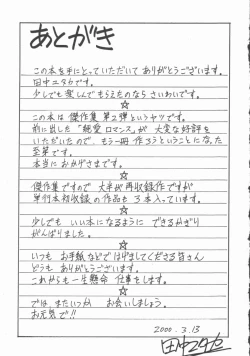 あとがき
この本を手にとっていただいて ありがとうございます。
田中ユタカです。
少しでも楽しんでもらえたのなら さいわいです。
☆
この本は 傑作集 第2弾というヤツです。
前に出した「純愛ロマンス」が 大変な好評を
いただいたので、もう一冊 作ろうということになった
至第です。
本当に おかげさまです。
☆
傑作集ですので 大半が再収録作ですが
単行本初収録 の作品も 3本入っています。
☆
少しでも いい本になるように できるかぎり
がんばりました。
☆
いつも お手紙などで はげましてくださる皆さん
どうも ありがとうございます。
これからも一生懸命 仕事をします。
☆
では、またいつか お会いしましょう。
お元気で!!
2000.3.13
田中ユタカ